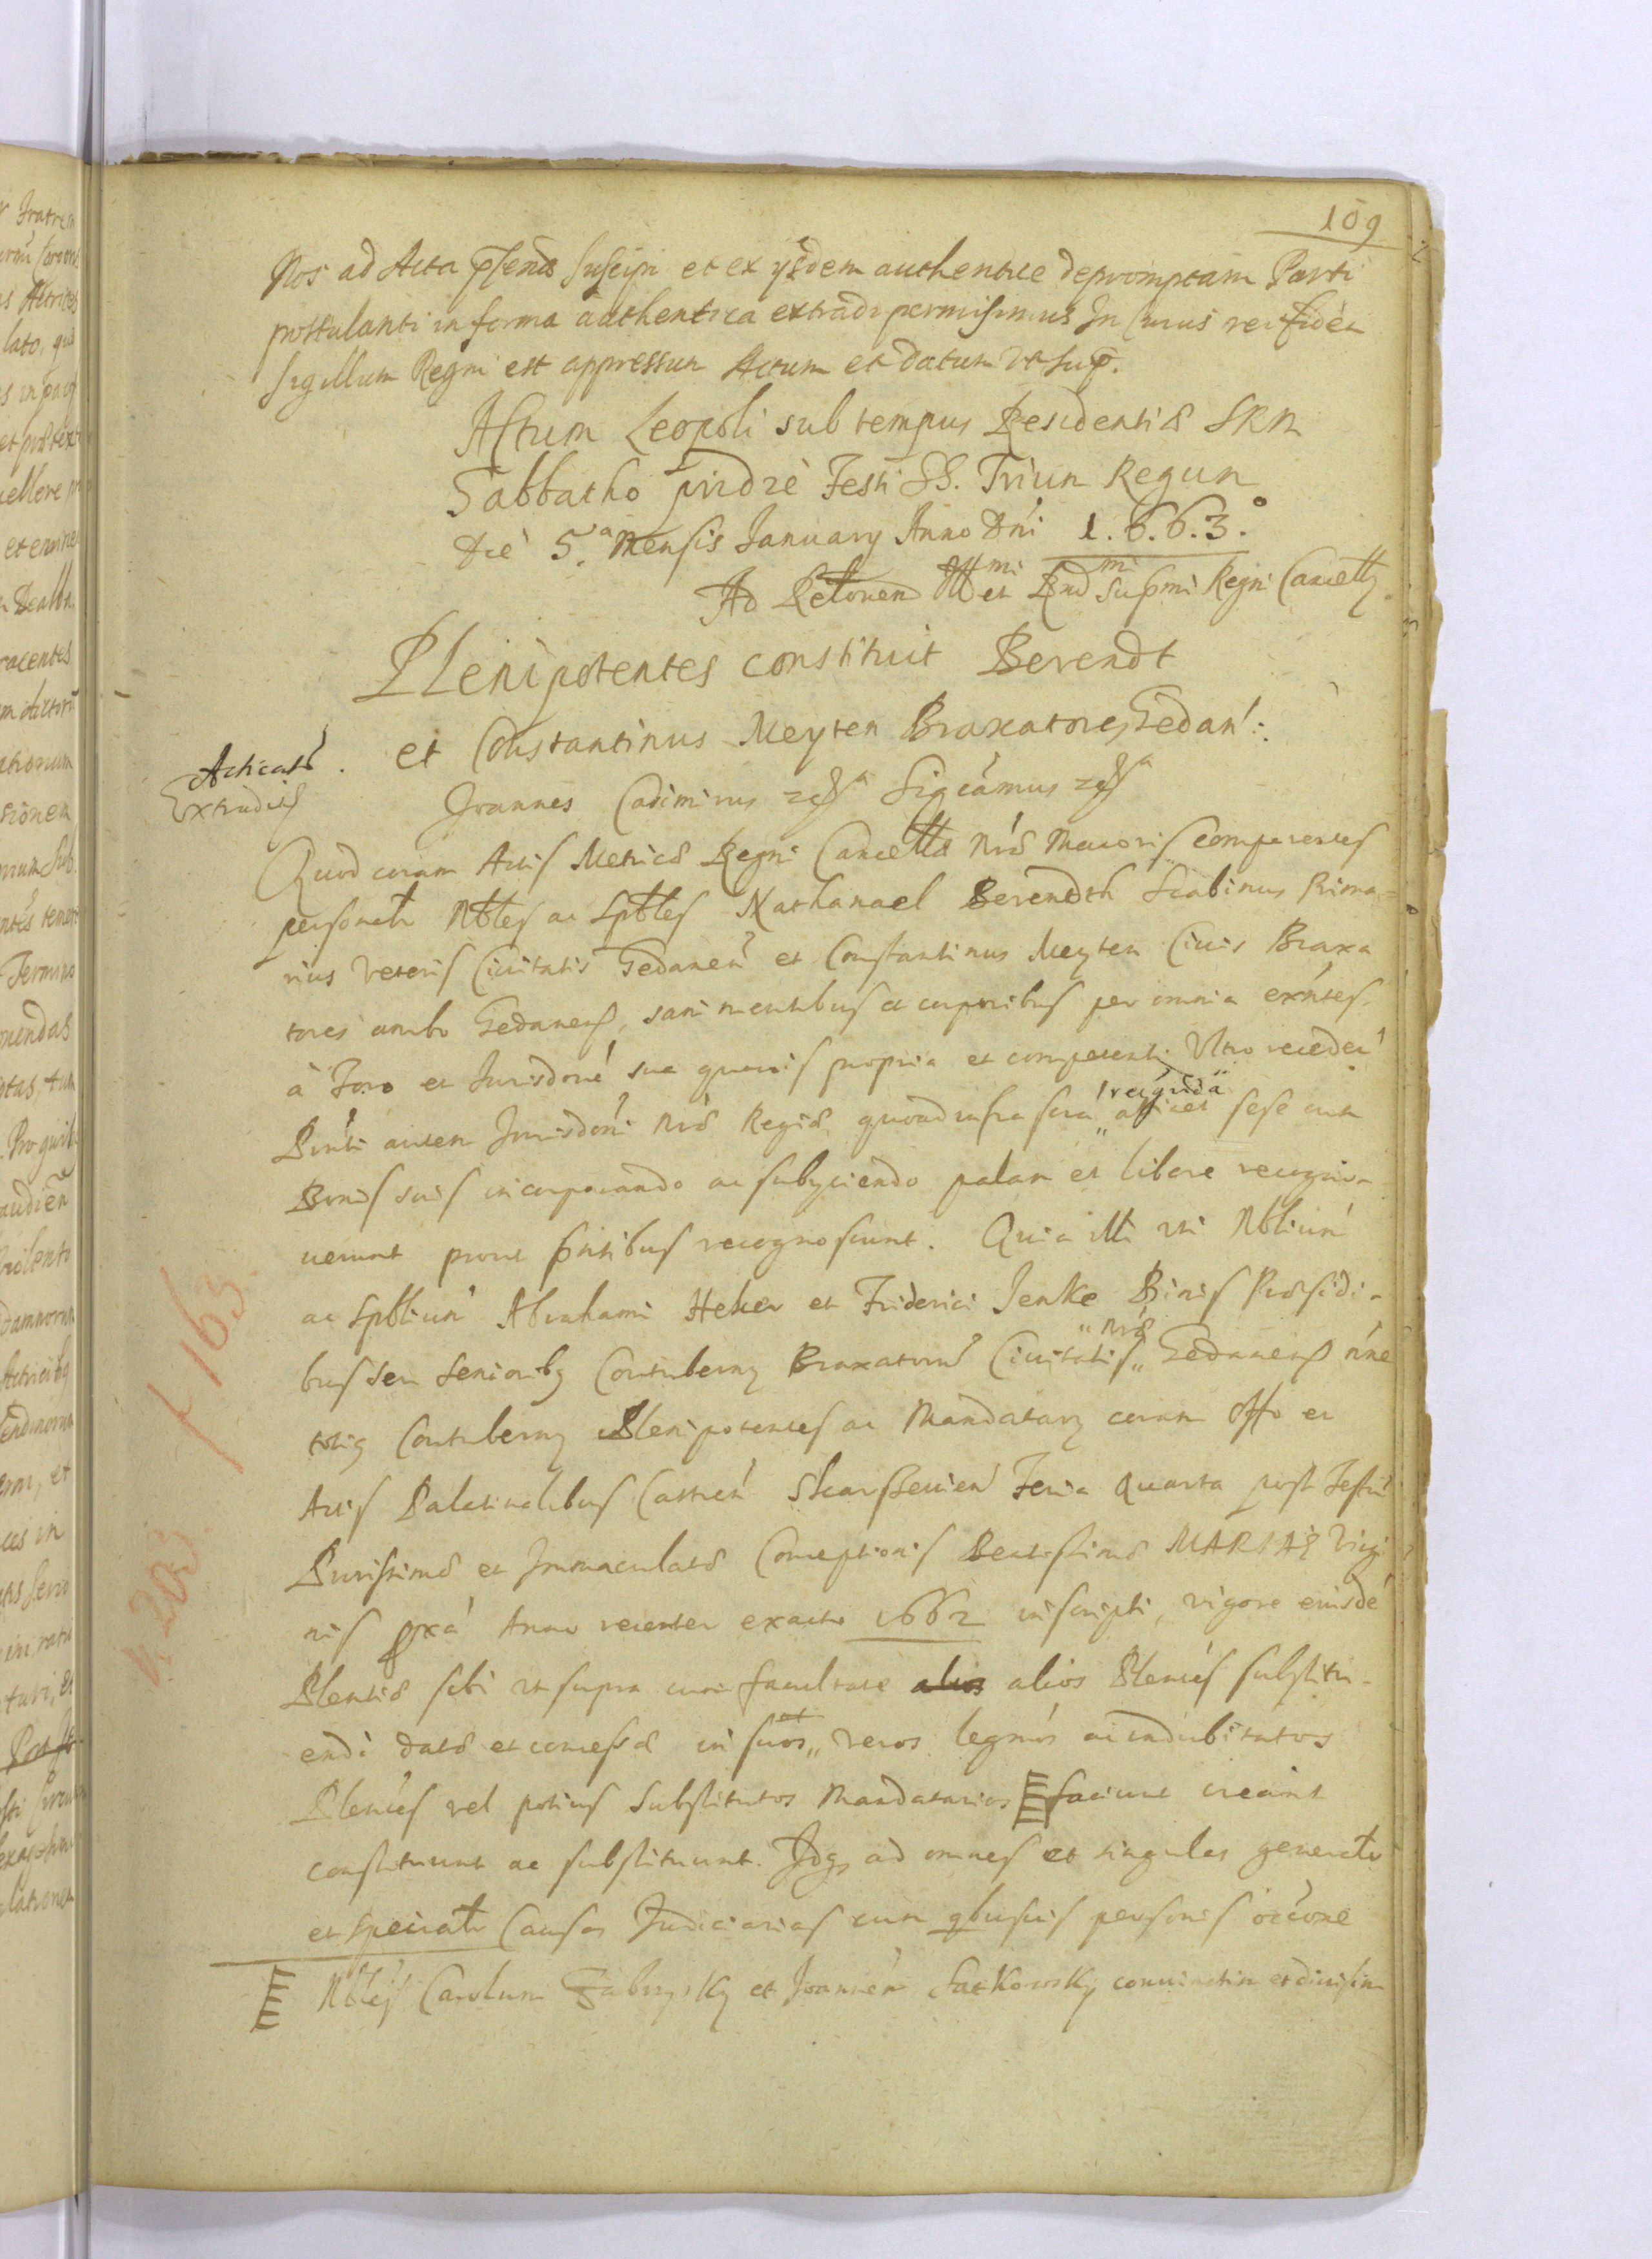 109
Nos ad Acta pñtia suscipi et ex ysdem authentice depromptam Parti
postulanti in forma authentica extradi permisimus In Cuius rei fidem
sigillum Regni est appressum Actum et datum ut sup.
Actum Leopoli sub tempus Residentiæ SRM
Sabbatho pridie Festi SS. Trium Regum
die 5.a Mensis January Anno Dni 1.6.6.3.o
Ad Rełonem Illmi et Rndmi Supmi Regni Cancell
Plenipotentes constituit Berendt
et Constantinus Meyten Braxatores Gedan:
Acticat.
Extradit
Joannes Casimirus Significamus
Quod coram Actis Metricæ Regni Cancellæ Nræ Maioris comparentes
personalr Nobles ac Spbles Nathanael Berendth Scabinus Prima
rius Veteris Civitatis Gedanen et Constantinus Meyten Civis Braxa
tores ambo Gedanens, sani mentibus et corporibus per omnia exntes,
à Foro et Jurisdone sua quavis propria et competenti Ultro receden
Pnti autem Jurisdoni Nræ Regiæ, quoad infrascra sese cum
Bonis suis incorporando ac subyciendo palam et libere recogno
verunt prout pntibus recognoscunt. Quia illi uti Nblium
ac Spblium Abrahami Heker et Friderici Jenke Binis Præsidi
bus seu Seniorib Contuberny Braxatorum Civitatis „Nræ Gedanens nne
totig Contuberny Plenipotentes ac Mandatary coram Offo et
Actis Palatinalibus Castren Skarszevien Feria Quarta post Festum
Purissimæ et Immaculatæ Conceptionis Beatissimæ MARIAE Virgi
nis pxa Anno recenter exacto 1662 inscripti, vigore eiusdem
Plentiæ sibi ut supra cum facultate alios alios Plentes substitu
endi datæ et concessæ in suos „et veros legmos ac indubitatos
Plentes vel potius Substitutos Mandatarios faciunt creant
constituunt ac substituunt. Idq, ad omnes et singulas generalr
et specialr Causas Judiciarias cum qbusvis personis occone
Nobles Carolum et Joannem Satkowsky coniunctim et divisim
f 163.
203